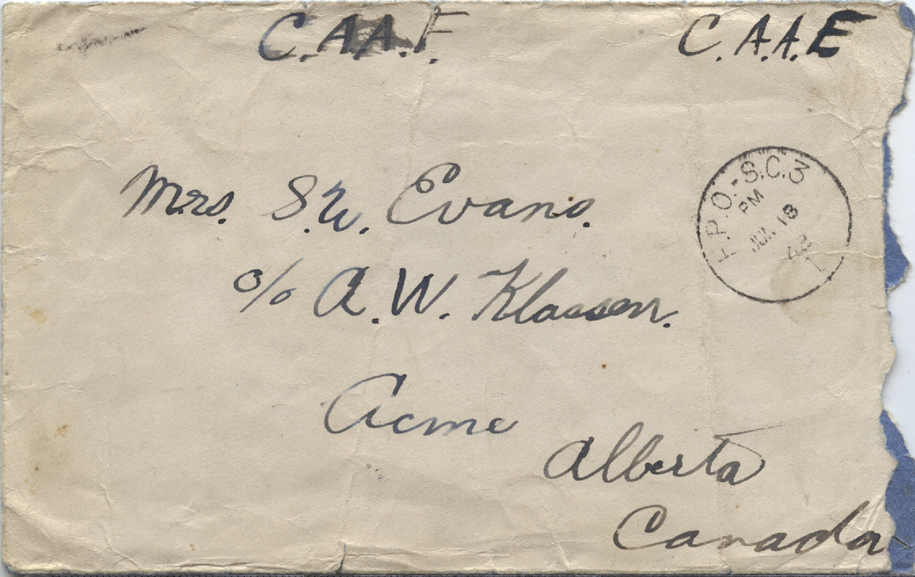 C.A.A.F. C.A.A.F
F.P.O.-S.C.3
PM
JUN 18
42
Mrs. S.W. Evans.
c/o A.W. Klassen.
Acme
Alberta
Canada